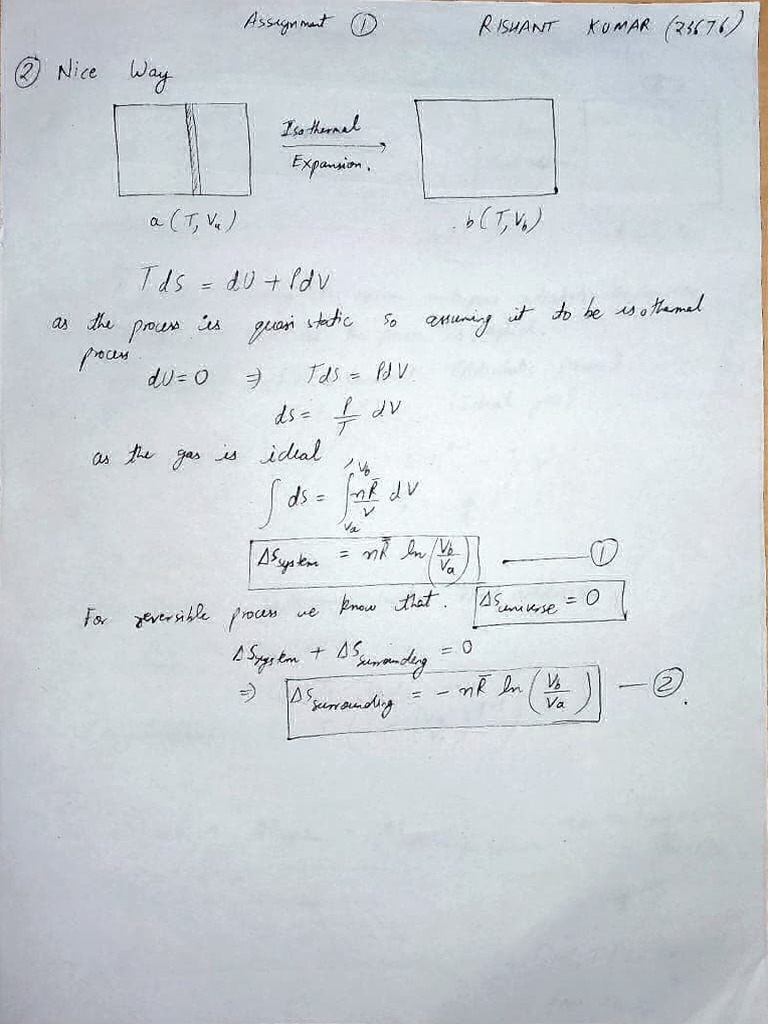 Assignment ① RISHANT KUMAR (23676)
② Nice Way
Isothermal
Expansion.
a (T, Va) b (T, Vb)
TdS = dU + PdV
as the process is quasi static so assuming it to be isothermal
process
dU = 0 ⇒ TdS = PdV.
dS = P/T dV
as the gas is ideal
∫ dS = ∫_{Va}^{Vb} nR̄/V dV
ΔS_system = nR̄ ln (Vb/Va) — ①
For reversible process we know that. ΔS_universe = 0
ΔS_system + ΔS_surrounding = 0
⇒ ΔS_surrounding = - nR̄ ln (Vb/Va) — ②.